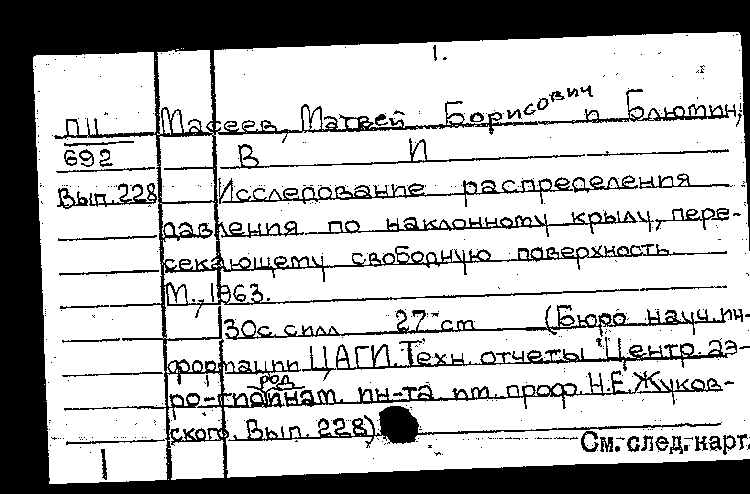 1.
ПII Масеев, Матвей Борисович и Блютин,
692 В И
Вып. 228 Исследование распределения
давления по наклонному крылу, пере-
секающему свободную поверхность
М., 1963.
30с. с илл. 27 cm (Бюро науч. ин-
формации ЦАГИ. Техн. отчеты Центр. аэ-
ро-гидродинам. ин-та им. проф. Н.Е. Жуков-
ского. Вып. 228)
См. след. карт.